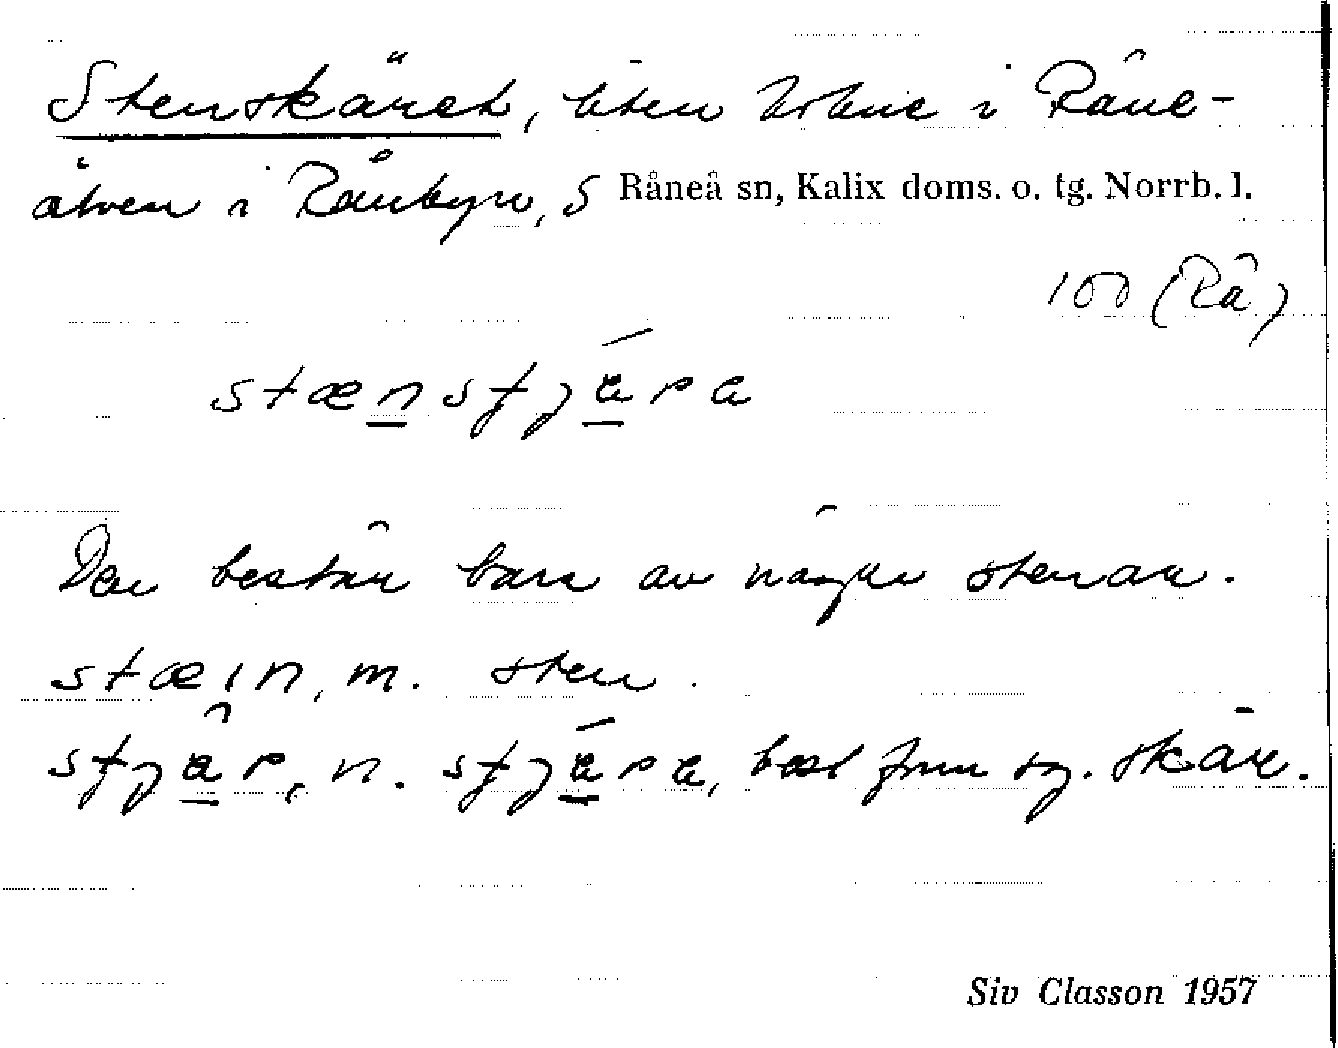 Stenskäret, liten holme i Råne-
älven i Rånbyn, S Råneå sn, Kalix doms. o. tg. Norrb. l.
100 (Rå)
stænstjára
Den består bara av några stenar.
stæin, m. sten.
stjâr, n. stjára, best form sg. skär.
Siv Classon 1957